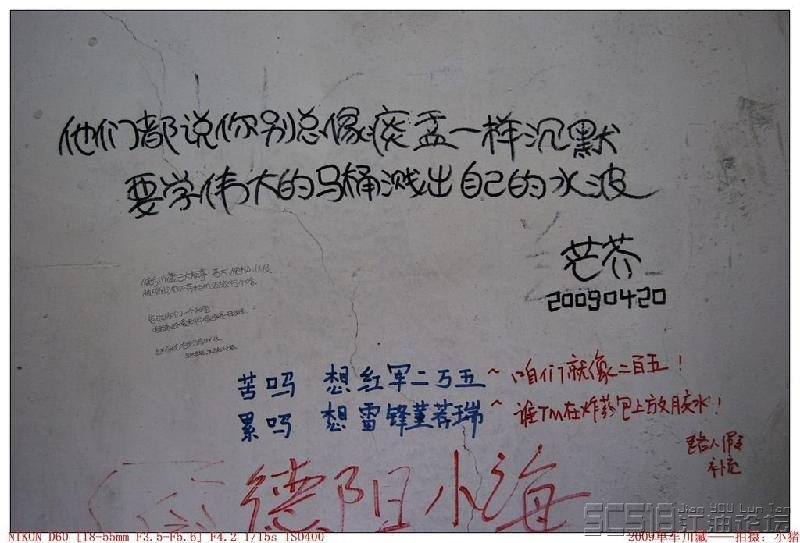 他们都说你别总像痰盂一样沉默
要学伟大的马桶溅出自己的水波
芒芥
20090420
苦吗 想红军二万五~咱们就像二百五!
累吗 想雷锋董存瑞~谁TM在炸药包上放胶水!
路人假
补充
德阳小海
SCS518 江湖论坛
NIKON D60 [18-55mm F3.5-F5.6] F4.2 1/15s ISO400
2009单车川藏——拍摄:小猪